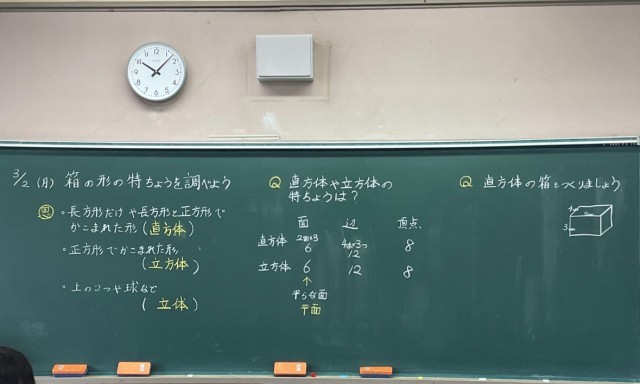 3/2 (月) 箱の形の特ちょうを調べよう
・長方形だけや長方形と正方形で
かこまれた形(直方体)
・正方形でかこまれた形
(立方体)
・上の2つや球など
(立体)
Q 直方体や立方体の
特ちょうは?
面 辺 頂点
2面×3 4本×3つ
直方体 6 12 8
立方体 6 12 8
↑
平らな面
平面
Q 直方体の箱をつくりましょう
12 1 2 3 4 5 6 7 8 9 10 11